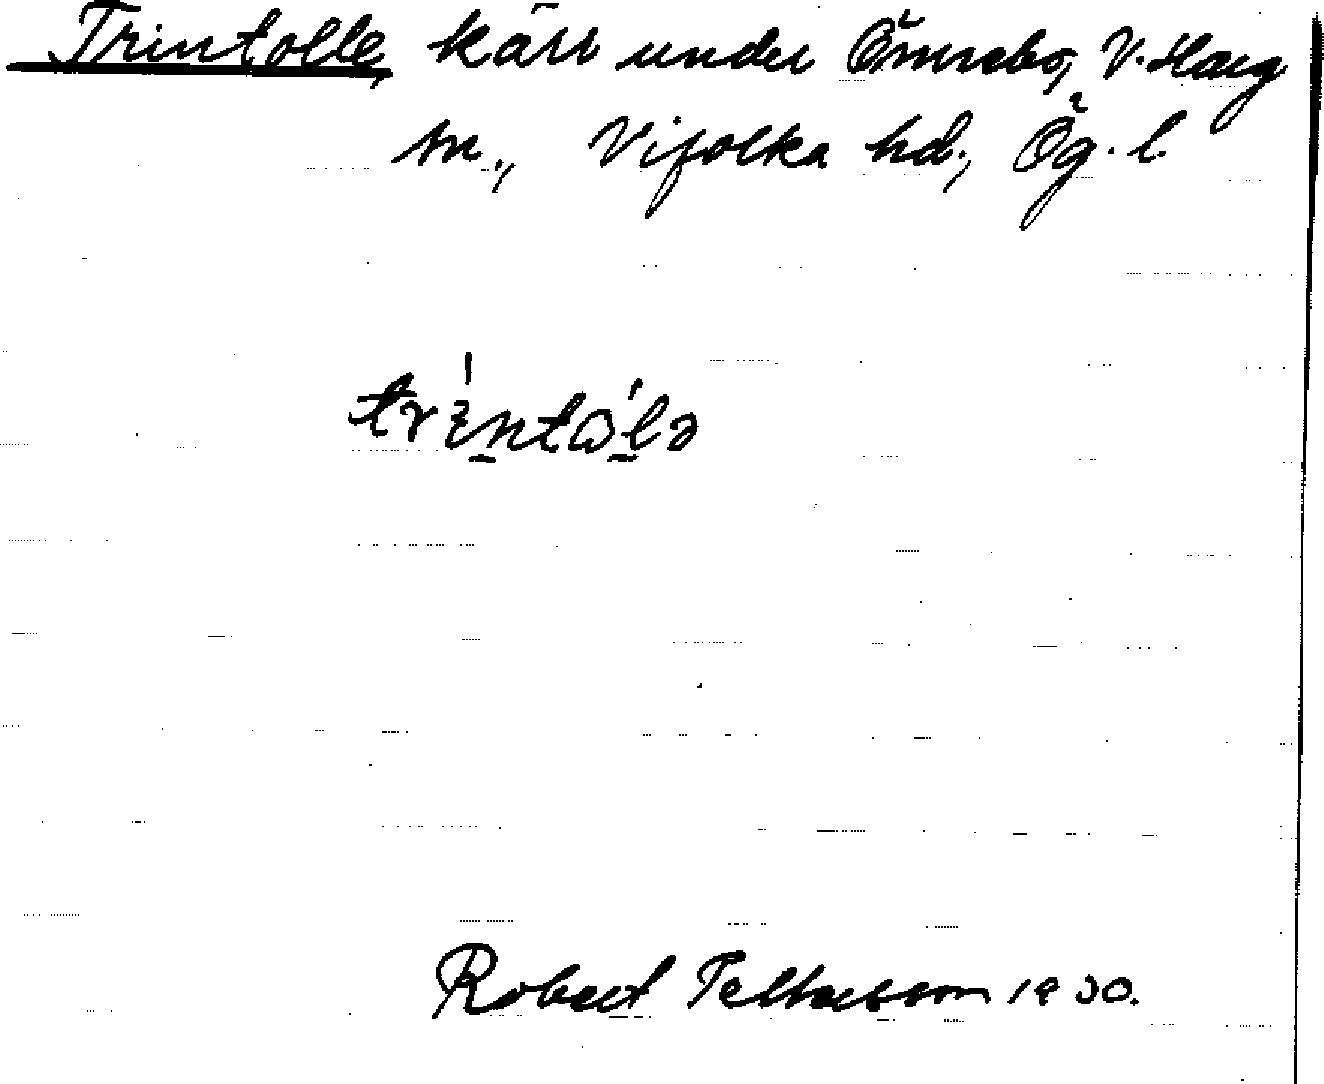 Trintolle, kärr under Önnebo, V. Harg
sn., Vifolka hd., Ög. l.
trintålə
Robert Pettersson 1930.